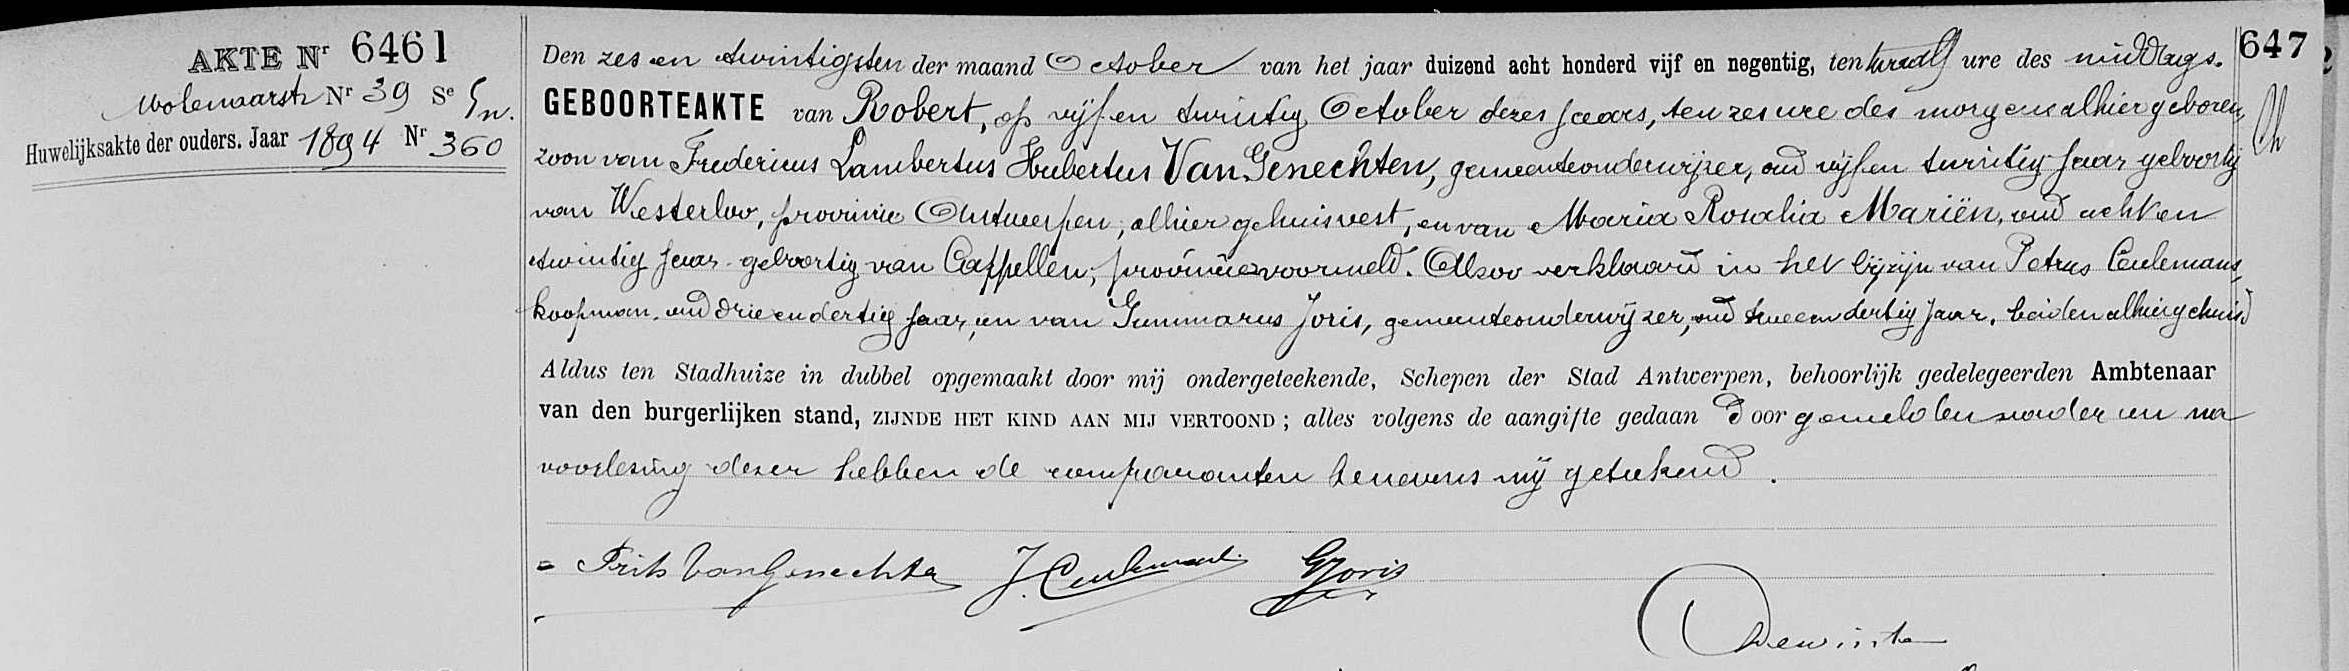 AKTE Nr 6461
Molenaarstr Nr 39 Se 5 W.
Huwelijksakte der ouders. Jaar 1894 Nr 360
647
Den zes en twintigsten der maand October van het jaar duizend acht honderd vijf en negentig, ten twaalf ure des middags.
GEBOORTEAKTE van Robert, op vijf en twintig October dezes jaars, ten zes ure des morgens alhier geboren,
zoon van Fredericus Lambertus Hubertus Van Genechten, gemeenteonderwijzer, oud vijf en twintig jaar geboortig
van Westerloo, provincie Antwerpen, alhier gehuisvest, en van Maria Rosalia Mariën, oud acht en
twintig jaar geboortig van Cappellen, provincie voormeld. Alzoo verklaard in het bijzijn van Petrus Ceulemans,
koopman, oud drie en dertig jaar, en van Gummarus Joris, gemeenteonderwijzer, oud twee en dertig jaar, beiden alhier gehuisd
Aldus ten Stadhuize in dubbel opgemaakt door mij ondergeteekende, Schepen der Stad Antwerpen, behoorlijk gedelegeerden Ambtenaar
van den burgerlijken stand, ZIJNDE HET KIND AAN MIJ VERTOOND; alles volgens de aangifte gedaan door gemelden vader en na
voorlezing dezer hebben de comparanten benevens mij geteekend.
Frits Van Genechten J. Ceulemans G Joris